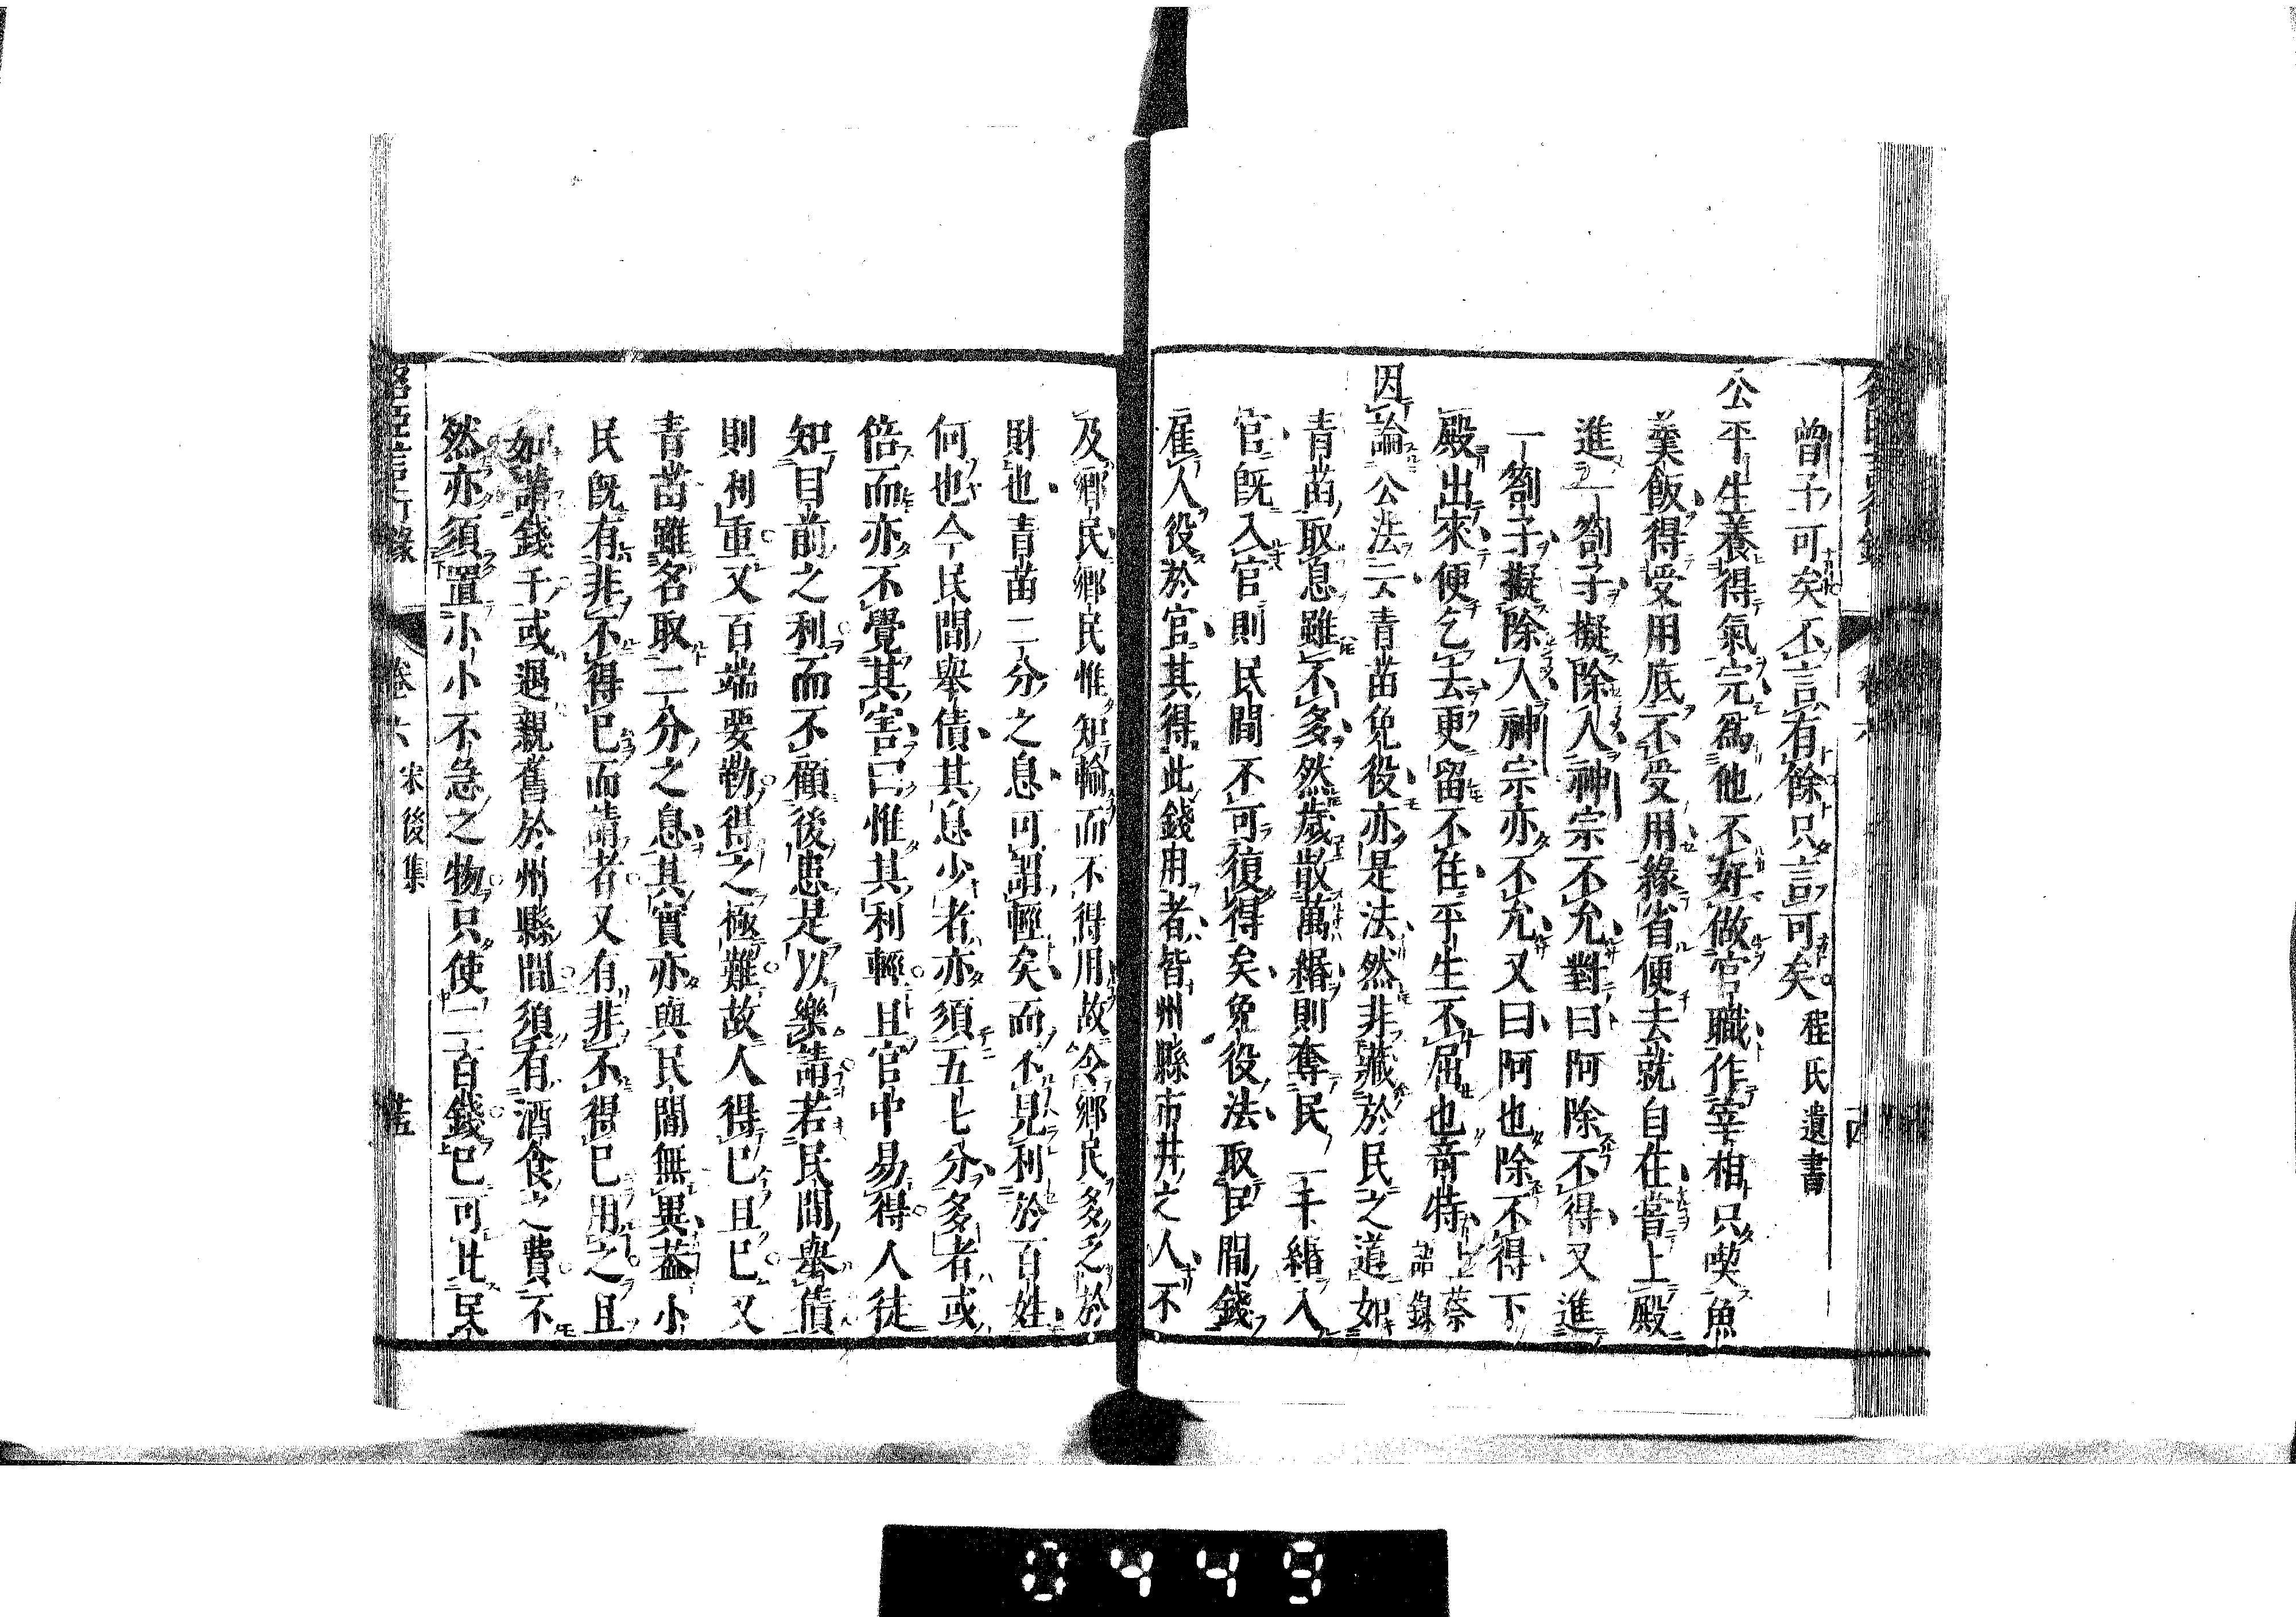 曾子可矣不言有餘只言可矣程氏遺書
公平生養得氣完爲他不好做官職作宰相只喫魚
羹飯得受用底不受用緣省便去就自在嘗上殿
進一劄子擬除人神宗不允對曰阿除不得又進
一劄子擬除人神宗亦不允又曰阿也除不得下
殿出來便乞去更留不住平生不屈也奇特上蔡語錄
因論公法云青苗免役亦是法然非藏於民之道如
青苗取息雖不多然歲散萬緡則奪民二千緡入
官既入官則民間不可復得矣免役法取民間錢
雇人役於官其得此錢用者皆州縣市井之人不
及鄉民鄉民惟知輸而不得用故令鄉民多乏於
財也青苗二分之息可謂輕矣而不見利於百姓
何也今民間舉債其息少者亦須五七分多者或
倍而亦不覺其害曰惟其利輕且官中易得人徒
知目前之利而不顧後患是以樂請若民間舉債
則利重又百端要勒得之極難故人得已且已又
青苗雖名取二分之息其實亦與民間無異蓋小
民既有非不得已而請者又有非不得已用之且
如請錢千或遇親舊於州縣間須有酒食之費不
然亦須置小小不急之物只使二百錢已可比民
卷六 宋後集
0449